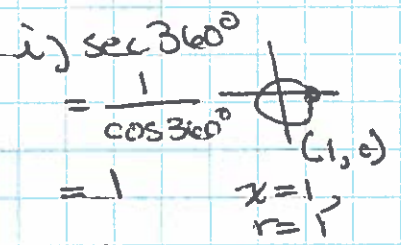 i) sec 360°
= 1/cos 360°
(1, 0)
= 1
x = 1,
r = 1